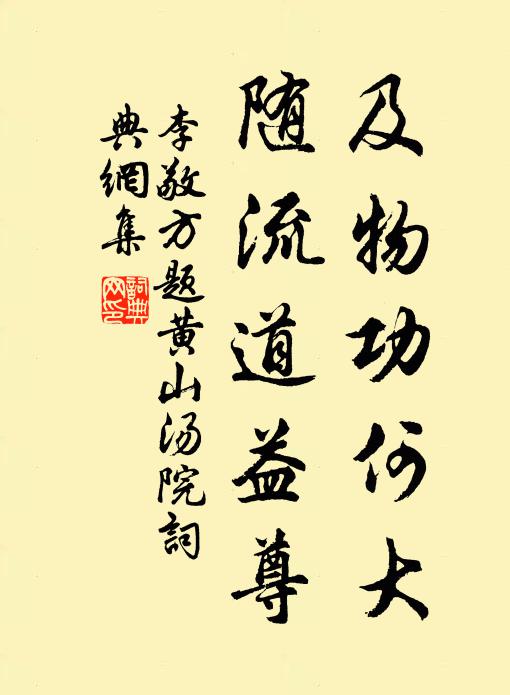 及物功何大
随流道益尊
李敬方题黄山汤院詞
典網集
詞典
网印